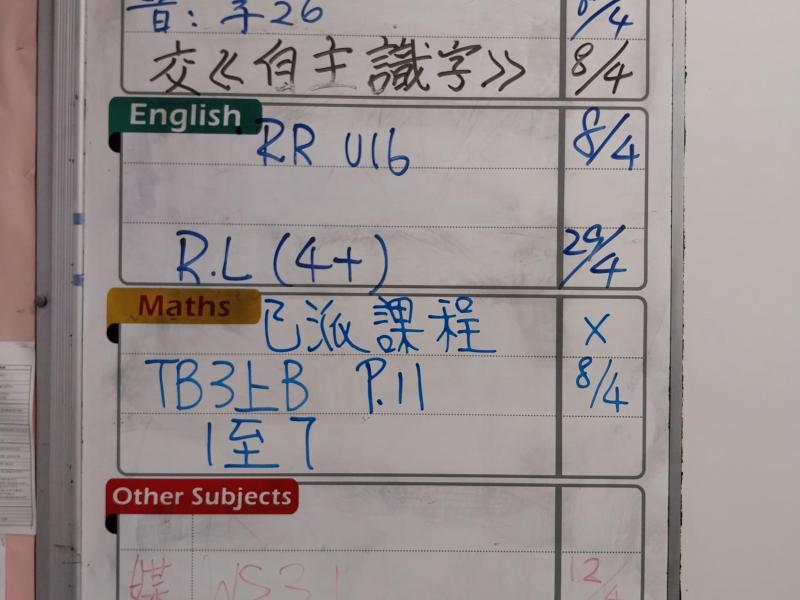 音: 字26 8/4
交《自主識字》 8/4
English
RR U16 8/4
R.L (4+) 29/4
Maths 已派課程 X
TB3上B P.11 8/4
1至7
Other Subjects
WS31 12/4